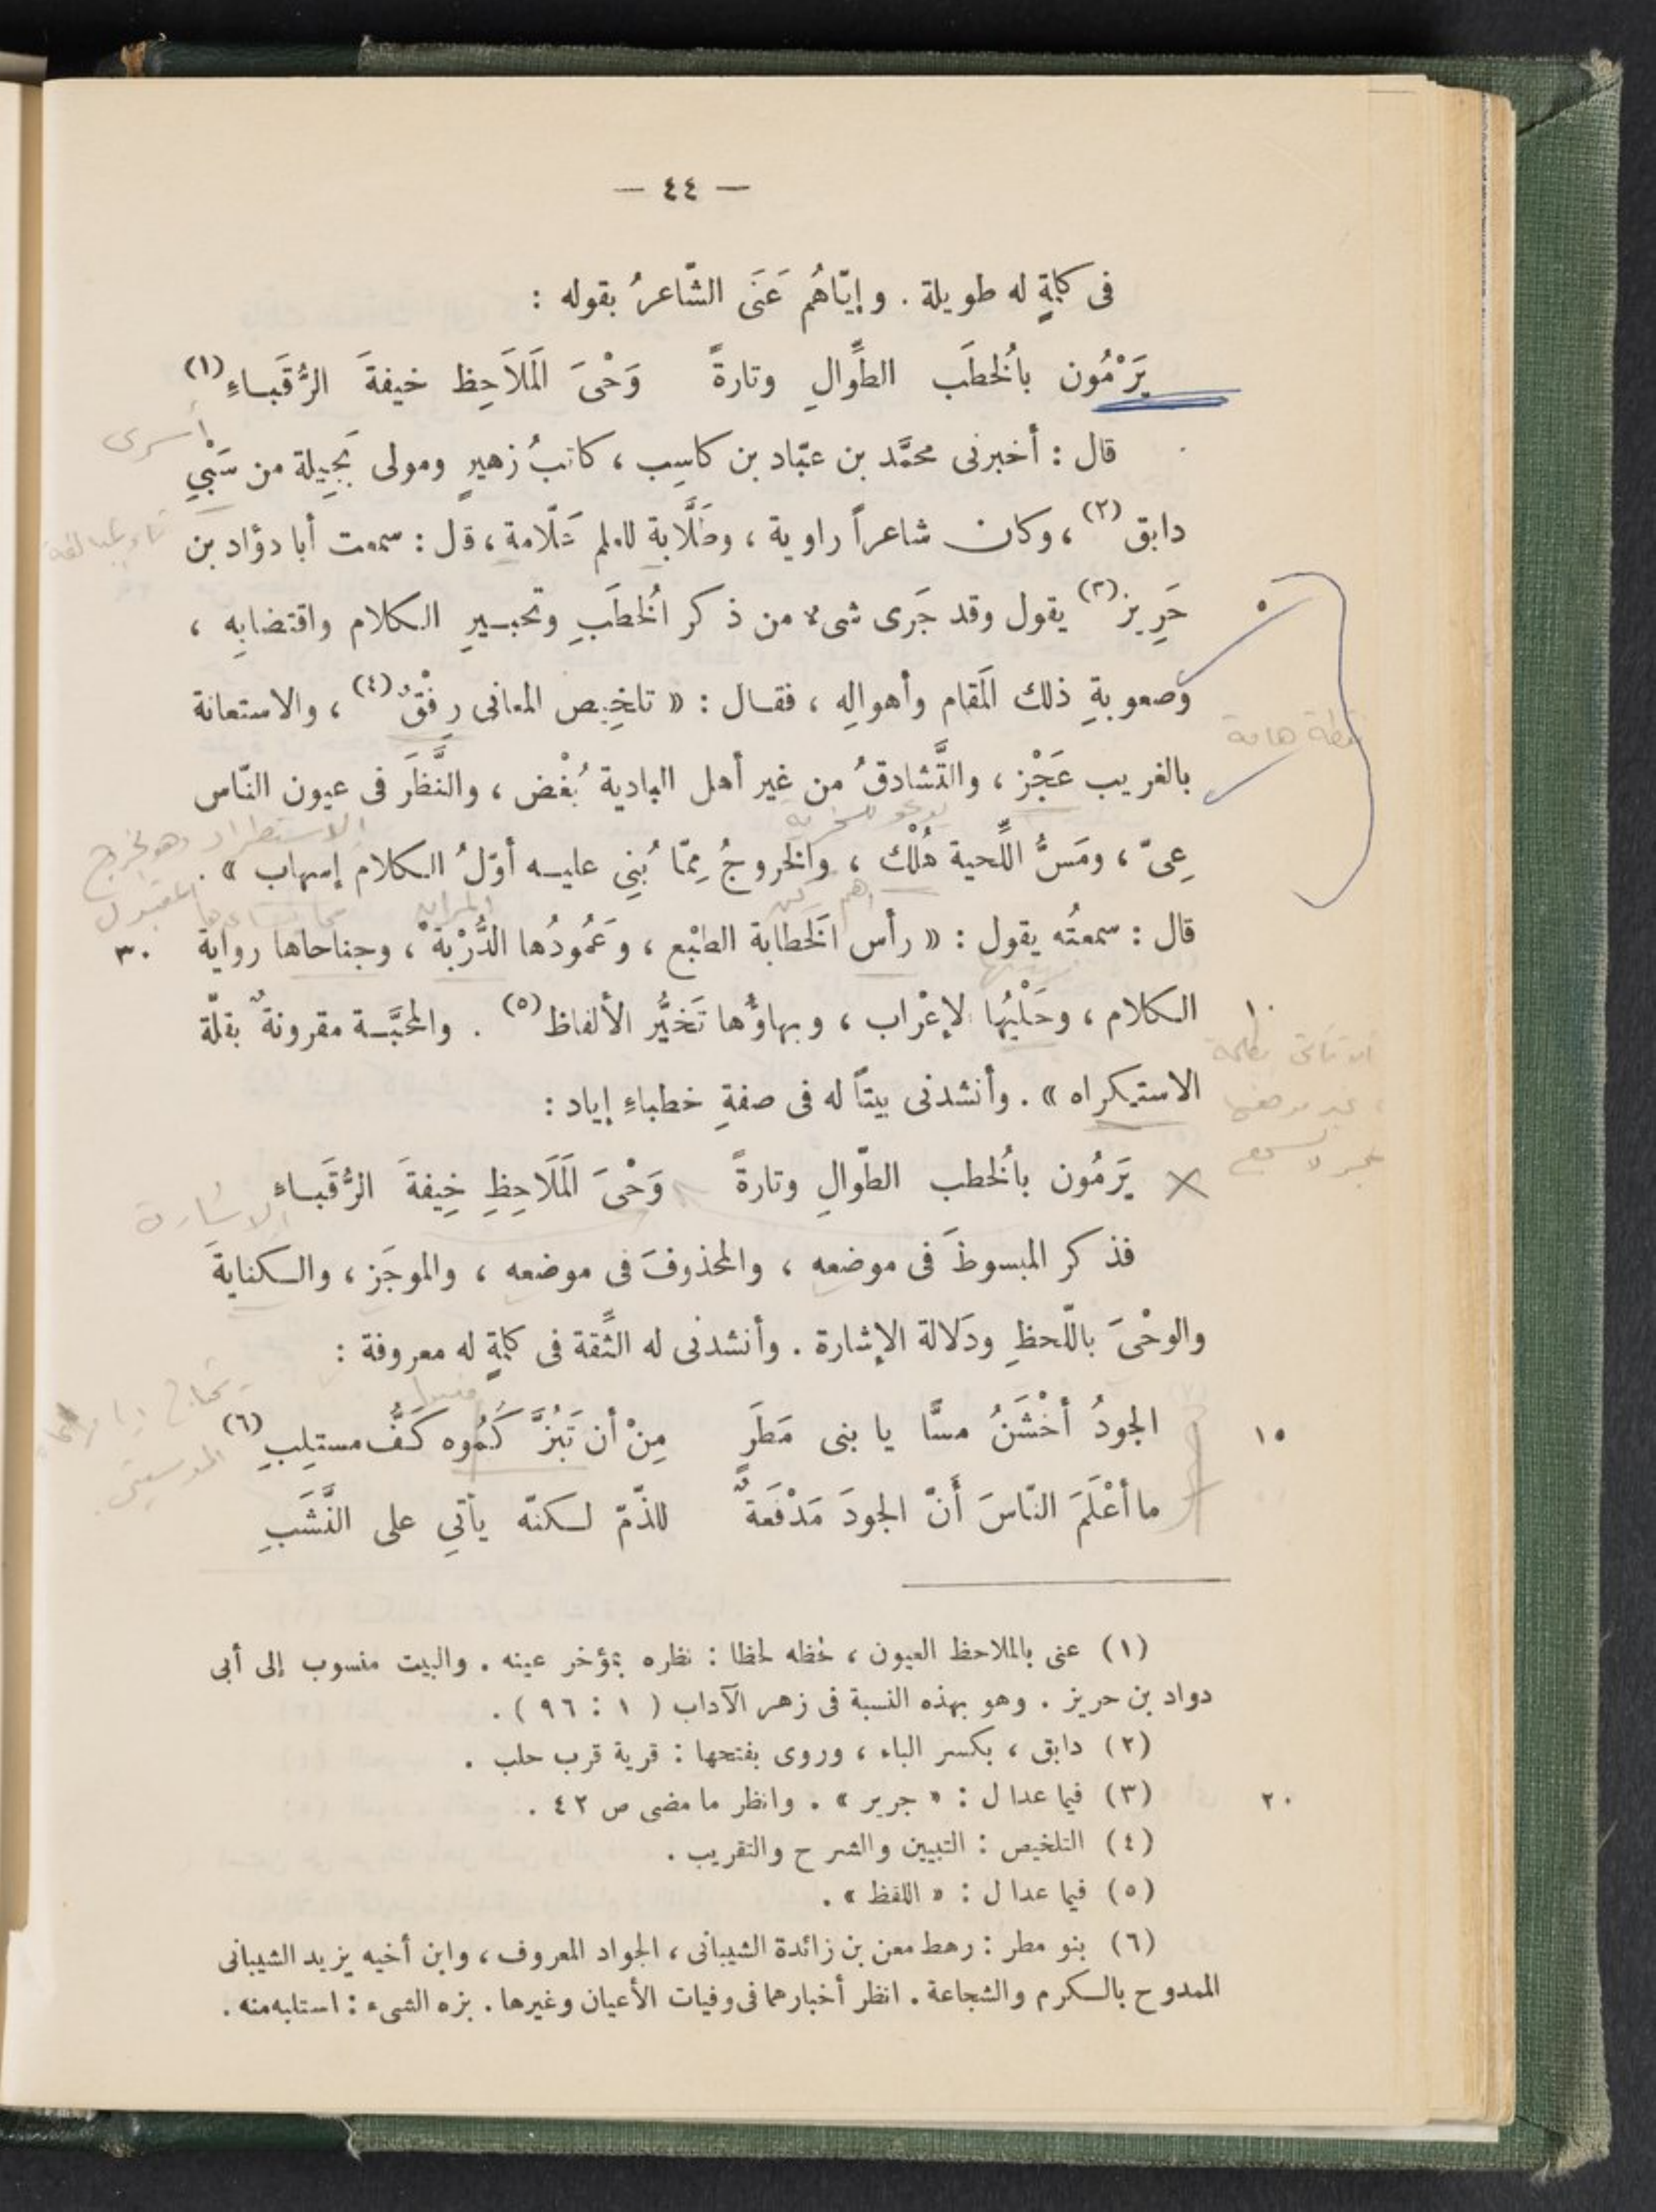 — ٤٤ —
فى كلمةٍ له طويلة . وإيّاهُم عَنَى الشّاعرُ بقوله :
يَرْمُون بالُخطَب الطِّوالِ وتارةً وَحْىَ الَملاَحِظ خيفةَ الرُّقَباءِ (١)
أسرى
قال : أخبرنى محمَّد بن عبّاد بن كاسِب ، كاتبُ زهيرٍ ومولى بَجِيلة من سَبْىِ
دابق (٢) ، وكان شاعراً راوية ، وطَلَّابة للعلم عَلّامة ، قال : سمعت أبا دؤاد بن
حَرِيز (٣) يقول وقد جَرى شىء من ذكر الُخطَبِ وتحبيرِ الكلام واقتضابِه ،
٥
وصعوبةِ ذلك الَمقام وأهوالِه ، فقال : « تلخِيص المعانى رِفْقٌ (٤) ، والاستعانة
نقطة هامة
بالغريب عَجْز ، والتَّشادقُ من غير أهل البادية بُغْض ، والنَّظَر فى عيون النّاس
عِىّ ، ومَسُّ اللِّحية هُلْك ، والخروجُ مِمّا بُنِى عليه أوّلُ الكلام إسهاب » .
الاستطراد وهو الخروج
قال : سمعتُه يقول : « رأس الَخطابة الطبْع ، وعَمُودُها الدُّرْبة ، وجناحاها رواية ٣٠
أهم ركن
المران
الكلام ، وحَلْيُها الإعْراب ، وبهاؤُها تَخيُّر الألفاظ (٥) . والمحبَّة مقرونةٌ بقلّة
١٠
الاستكراه » . وأنشدنى بيتاً له فى صفةِ خطباءِ إياد :
يَرَمُون بالُخطب الطّوالِ وتارةً وَحْىَ الَملَاحِظِ خِيفةَ الرُّقَباءِ
الاشارة
فذكر المبسوطَ فى موضعه ، والمحذوفَ فى موضعه ، والموجَز ، والكنايةَ
والوحْىَ باللّحظِ ودَلالة الإشارة . وأنشدنى له الثِّقة فى كلمةٍ له معروفة :
الجودُ أخْشَنُ مسًّا يا بنى مَطَرٍ مِنْ أن تَبُزَّ كُمُوه كَفُّ مستلِبِ (٦)
١٥
ما أعْلَمَ النّاسَ أَنّ الجودَ مَدْفَعَةٌ للذّمّ لكنّه يأتِى على النَّشَبِ
(١) عنى بالملاحظ العيون ، لحظه لحظا : نظره بمؤخر عينه . والبيت منسوب إلى أبى
دواد بن حريز . وهو بهذه النسبة فى زهر الآداب ( ١ : ٩٦ ) .
(٢) دابق ، بكسر الباء ، وروى بفتحها : قرية قرب حلب .
(٣) فيما عدا ل : « جرير » . وانظر ما مضى ص ٤٢ .
٢٠
(٤) التلخيص : التبيين والشرح والتقريب .
(٥) فيما عدا ل : « اللفظ » .
(٦) بنو مطر : رهط معن بن زائدة الشيبانى ، الجواد المعروف ، وابن أخيه يزيد الشيبانى
الممدوح بالكرم والشجاعة . انظر أخبارهما فى وفيات الأعيان وغيرها . بزه الشىء : استلبه منه .